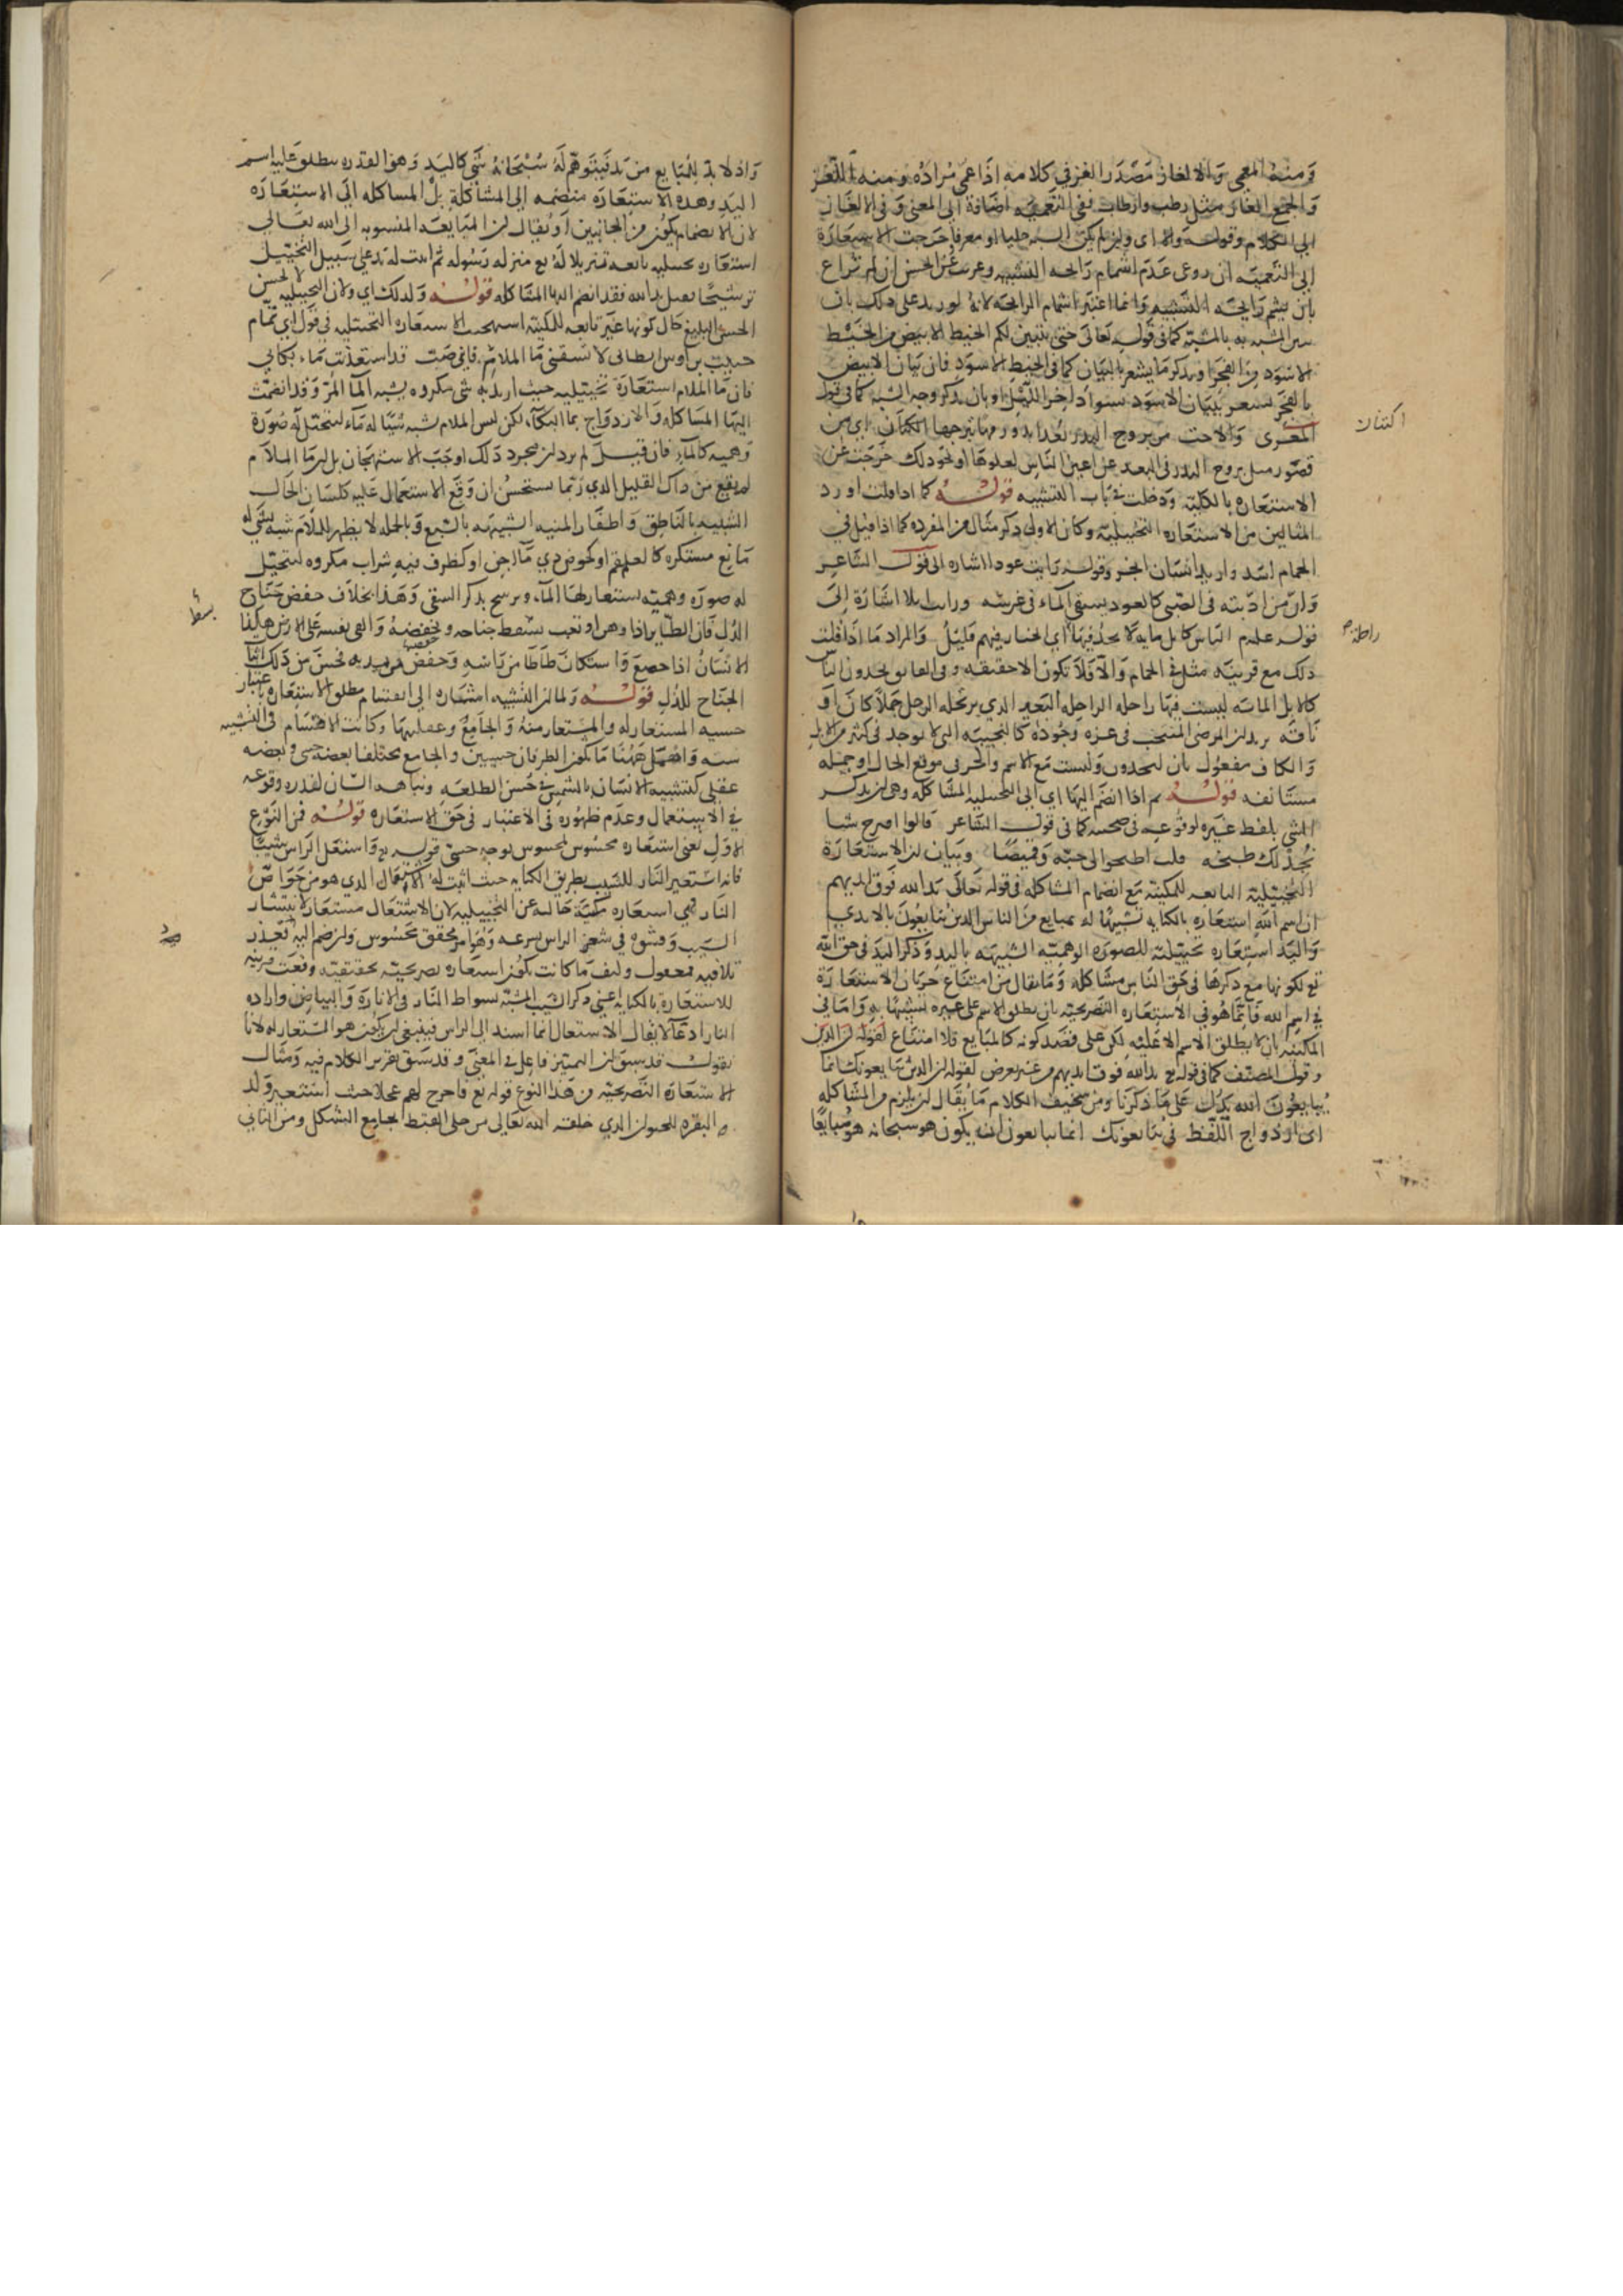 ومنه المعمى والالغاز مصدر الغز في كلامه اذا عمى مراده ومنه اللغز
والجمع الغاز مثل رطب وارطاب ففي التعمية اضافة الى المعنى وفي الالغاز
الى الكلام وقوله والا اى وان لم يكن الشبه جليا او معرفا خرجت الاستعارة
الى التعمية ان روعى عدم اشمام رايحه التشبيه وعريت عن الحسن ان لم تراع
بان يشم رايحة التشبيه وانما اعتبر اشمام الرايحة لانه لو زيد على ذلك بان
بين المشبه به بالمشبه كما في قوله تعالى حتى يتبين لكم الخيط الابيض من الخيط
الاسود من الفجر او بذكر ما يشعر بالبيان كما في الخيط الاسود فان بيان الابيض
بالفجر يشعر ببيان الاسود بسواد اخر الليل او بان يذكر وجه الشبه كما في قول
المعرى
قصور مثل بروج البدر في البعد عن اعين الناس لعلوها او نحو ذلك خرجت عن
الاستعاره بالكلية ودخلت في باب التشبيه قوله كما اذا قلت اورد
المثالين من الاستعاره التخييلية وكان الاولى ذكر مثال من المفرده كما اذا قيل في
الحمام اسد واريد انسان ابخر وقوله رايت عودا اشاره الى قول الشاعر
وان من ادبته في الصبى كالعود يسقى الماء في غرسه ورايت ابلا اشارة الى
قوله علم الناس كابل مايه لا يجد فيها اي الخيار فيهم قليل والمراد ما اذا قلت
ذلك مع قرينة مثل في الحمام والا فلا تكون الا حقيقه وفي الفايق تجدون الناس
كالابل المائة ليست فيها راحلة الراحلة البعير الذي يرتحله الرجل جملا كان او
ناقة يريد ان المرضى المنتخب في عزة وجوده كالنجيبة التي لا توجد في كثير من الابل
والكاف مفعول ثان لتجدون وليست مع الاسم والخبر في موقع الحال او جملة
مستانفه قوله ثم اذا انضم اليها اي الى التخييلية المشاكله وهي ان يذكر
الشي بلفظ غيره لوقوعه في صحبته كما في قول الشاعر قالوا اقترح شيا
نجد لك طبخه قلت اطبخوا لي جبة وقميصا وبيان ان الاستعارة
التخييلية التابعه للمكنية مع انضمام المشاكله في قوله تعالى يد الله فوق ايديهم
ان اسم الله استعاره بالكنايه تشبيها له بمبايع من الناس الذين يبايعون بالايدي
واليد استعاره تخييلية للصورة الوهمية الشبيهه باليد وذكر اليد في حق الله
تع لكونها مع ذكرها في حق الناس مشاكله وما يقال من امتناع جريان الاستعارة
في اسم الله فانما هو في الاستعاره التصريحية بان يطلق الاسم على غيره تشبيها به واما في
المكنيه بان لا يطلق الاسم الا عليه لكن على قصد كونه كالمبايع فلا امتناع لقوله ان الذين
وقول المصنف كما في قوله تع يد الله فوق ايديهم من غير تعرض لقوله ان الذين يبايعونك انما
يبايعون الله يدل على ما ذكرنا ومن سخيف الكلام ما يقال ان يلزم من المشاكله
اى ازدواج اللفظ في يبايعونك انما يبايعون الله يكون هو سبحانه هو مبايعا
اكتنان
راحلة صح
واذ لا بد للمبايع من يد فيتوهم له سبحانه شي كاليد وهو القدره يطلق عليه اسم
اليد وهذه الاستعارة منضمه الى المشاكلة بل المشاكله الى الاستعارة
لان الانضمام يكون من الجانبين او يقال ان المبايعه المنسوبه الى الله تعالى
استعاره تخييليه تابعه تنزيلا له تع منزله رسوله ثم اثبت له يد على سبيل التخييل
ترشيحا فقيل يد الله فقد انضم اليها المشاكله قوله ولذلك اي ولان التخييليه لا تحسن
الحسن البليغ حال كونها غير تابعه للمكنية استهجنت الاستعاره التخييليه في قول ابي تمام
حبيب بن اوس الطائي لا تسقني ماء الملام فانني صب قد استعذبت ماء بكائي
فان ماء الملام استعارة تخييليه حيث اريد به شي مكروه يشبه الماء المر وقد انضمت
اليها المشاكله والازدواج بماء البكاء لكن ليس الملام شبه شيئا له ماء ليتخيل له صورة
وهميه كالماء فان قيل لم يرد ان مجرد ذلك اوجب الاستهجان بل ان ماء الملام
لم يقع من ذاك القليل الذي ربما يستحسن ان وقع الاستعمال عليه كلسان الحال
الشبيه بالناطق واظفار المنيه الشبيهه بالسبع وبالجمله لا يظهر للملام شبه بشي له
مائع مستكره كالعلقم او كحوض ذي ماء آجن او كظرف فيه شراب مكروه ليتخيل
له صورة وهمية يستعار لها الماء ويرشح بذكر السقي وهذا بخلاف خفض جناح
الذل فان الطاير اذا وهن او تعب بسط جناحه وخفضه والقى نفسه على الارض هكذا
الانسان اذا خضع واستكان طاطا من راسه وخفض من يديه فحسن من ذلك اثبات
الجناح للذل قوله ولما ان التشبيه اشاره الى انقسام مطلق الاستعاره باعتبار
حسيه المستعار له والمستعار منه والجامع وعقليتها وكانت الاقسام في التشبيه
سته واهمل ههنا ما يكون الطرفان حسيين والجامع مختلفا بعضه حسي وبعضه
عقلي كتشبيه الانسان بالشمس في حسن الطلعه ونباهه الشان لندره وقوعه
في الاستعمال وعدم ظهوره في الاعتبار في حق الاستعاره قوله فمن النوع
الاول يعني استعاره محسوس لمحسوس بوجه حسي قوله تع واشتعل الراس شيبا
فانه استعير النار للشيب بطريق الكنايه حيث اثبت له الاشتعال الذي هو من خواص
النار فهي استعاره مكنية خاليه عن التخييليه لان الاشتعال مستعار لانتشار
الشيب وفشوه في شعر الراس بسرعه وهو امر محقق محسوس وان ضم اليه تعذر
تلافيه فمعقول وكيف ما كانت يكون استعاره تصريحية تحقيقية وقعت قرينه
للاستعارة بالكنايه اعني ذكر الشيب المشبه بشواظ النار في الانارة والبياض وارادة
النار ادعا لا يقال الاشتعال انما اسند الى الراس فينبغي ان يكون هو المستعار له لانا
نقول قد سبق ان التمييز فاعل في المعنى وقد سبق تقرير الكلام فيه ومثال
الاستعارة التصريحيه من هذا النوع قوله تع فاخرج لهم عجلا حيث استعير ولد
البقره للحيوان الذي خلقه الله تعالى من حلى القبط لجامع الشكل ومن الثاني